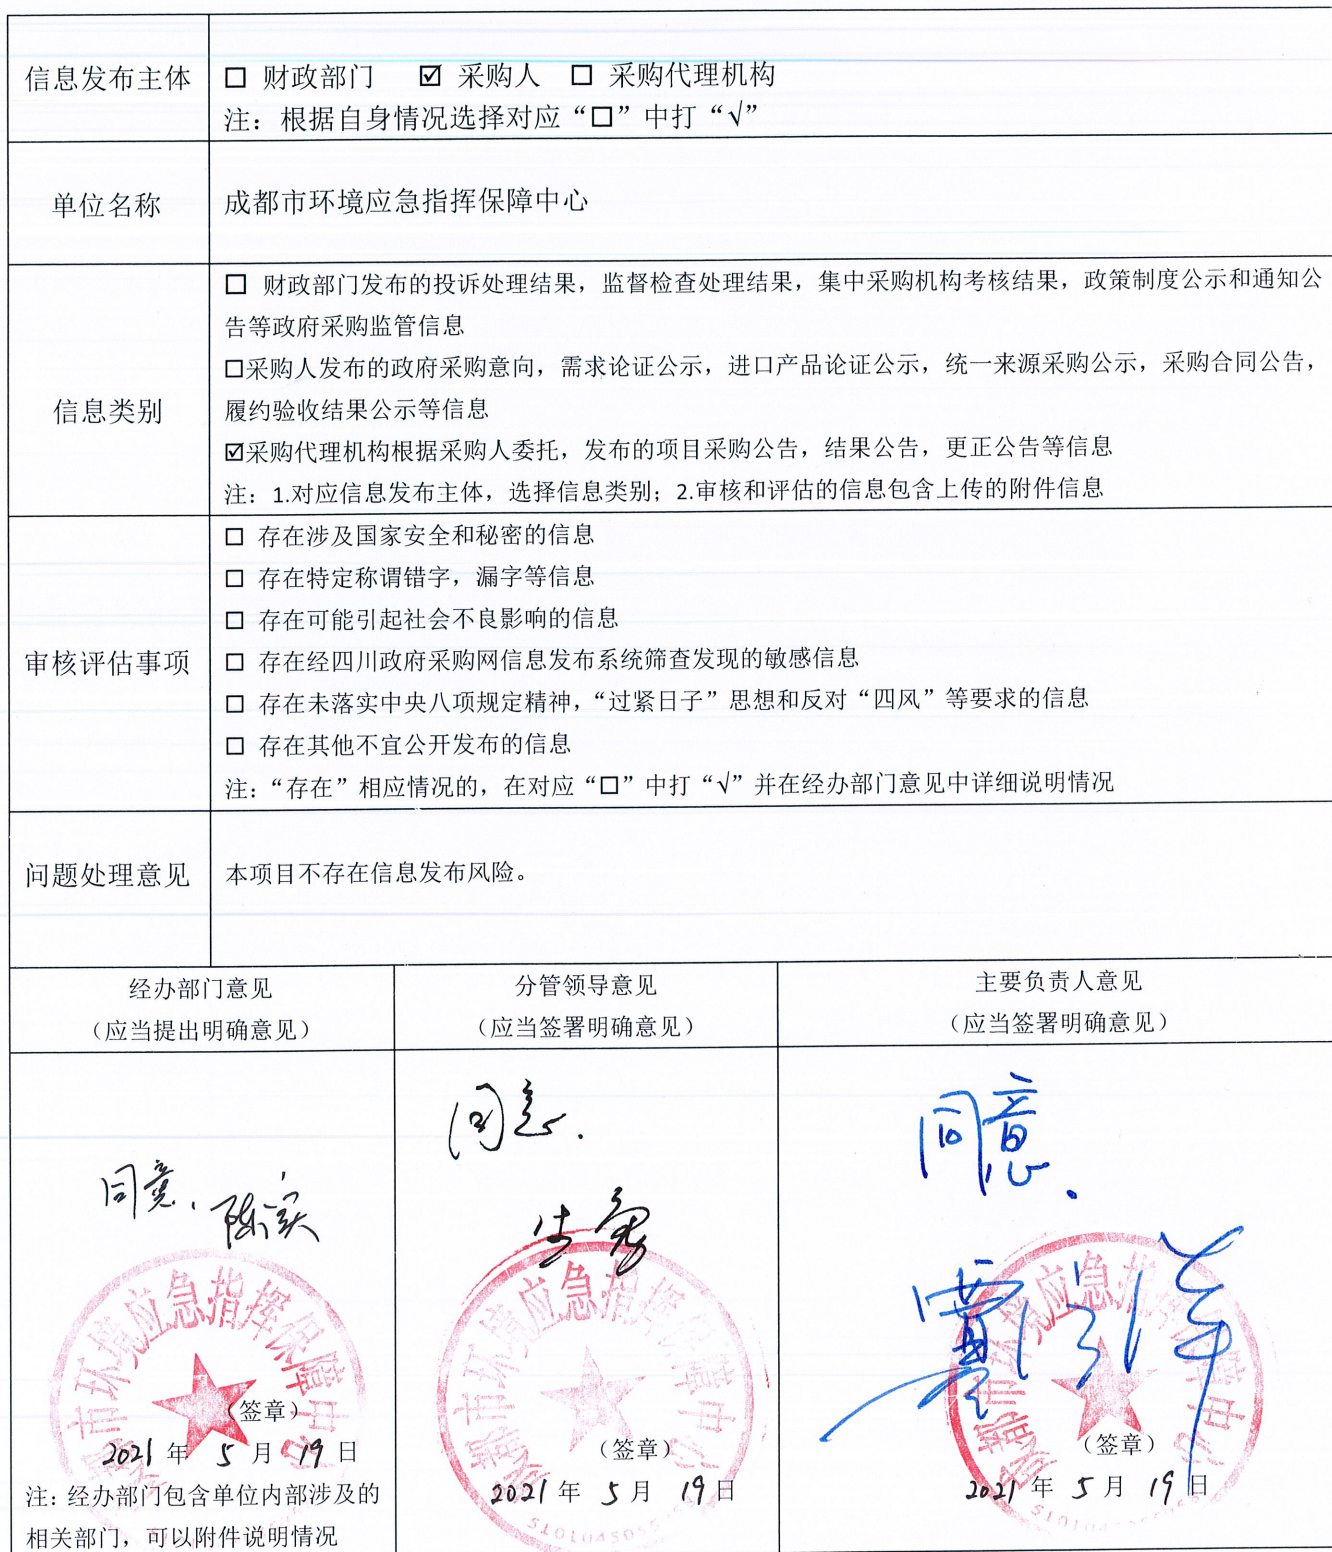 信息发布主体
□ 财政部门 ☑ 采购人 □ 采购代理机构
注：根据自身情况选择对应“□”中打“√”
单位名称
成都市环境应急指挥保障中心
信息类别
□ 财政部门发布的投诉处理结果，监督检查处理结果，集中采购机构考核结果，政策制度公示和通知公
告等政府采购监管信息
□采购人发布的政府采购意向，需求论证公示，进口产品论证公示，统一来源采购公示，采购合同公告，
履约验收结果公示等信息
☑采购代理机构根据采购人委托，发布的项目采购公告，结果公告，更正公告等信息
注：1.对应信息发布主体，选择信息类别；2.审核和评估的信息包含上传的附件信息
审核评估事项
□ 存在涉及国家安全和秘密的信息
□ 存在特定称谓错字，漏字等信息
□ 存在可能引起社会不良影响的信息
□ 存在经四川政府采购网信息发布系统筛查发现的敏感信息
□ 存在未落实中央八项规定精神，“过紧日子”思想和反对“四风”等要求的信息
□ 存在其他不宜公开发布的信息
注：“存在”相应情况的，在对应“□”中打“√”并在经办部门意见中详细说明情况
问题处理意见
本项目不存在信息发布风险。
经办部门意见
（应当提出明确意见）
分管领导意见
（应当签署明确意见）
主要负责人意见
（应当签署明确意见）
同意、
都市环境应急指挥保障中心
（签章）
2021 年 5 月 19 日
注：经办部门包含单位内部涉及的
相关部门，可以附件说明情况
同意.
都市环境应急指挥保障中心
（签章）
2021 年 5 月 19 日
同意.
都市环境应急指挥保障中心
（签章）
2021 年 5 月 19 日